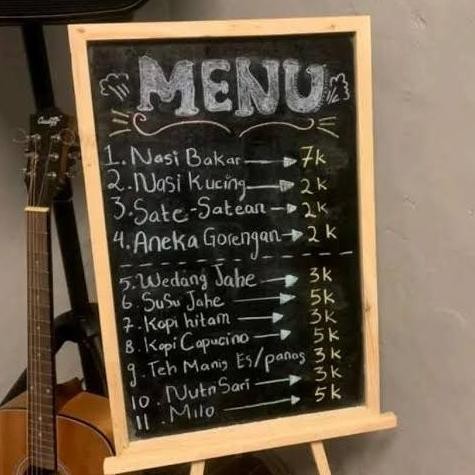 MENU
1. Nasi Bakar → 7k
2. Nasi Kucing → 2k
3. Sate-Satean → 2k
4. Aneka Gorengan → 2k
5. Wedang Jahe → 3k
6. Susu Jahe → 5k
7. Kopi hitam → 3k
8. Kopi Capucino → 5k
9. Teh Manis Es/panas 3k
10. NutriSari → 3k
11. Milo → 5k